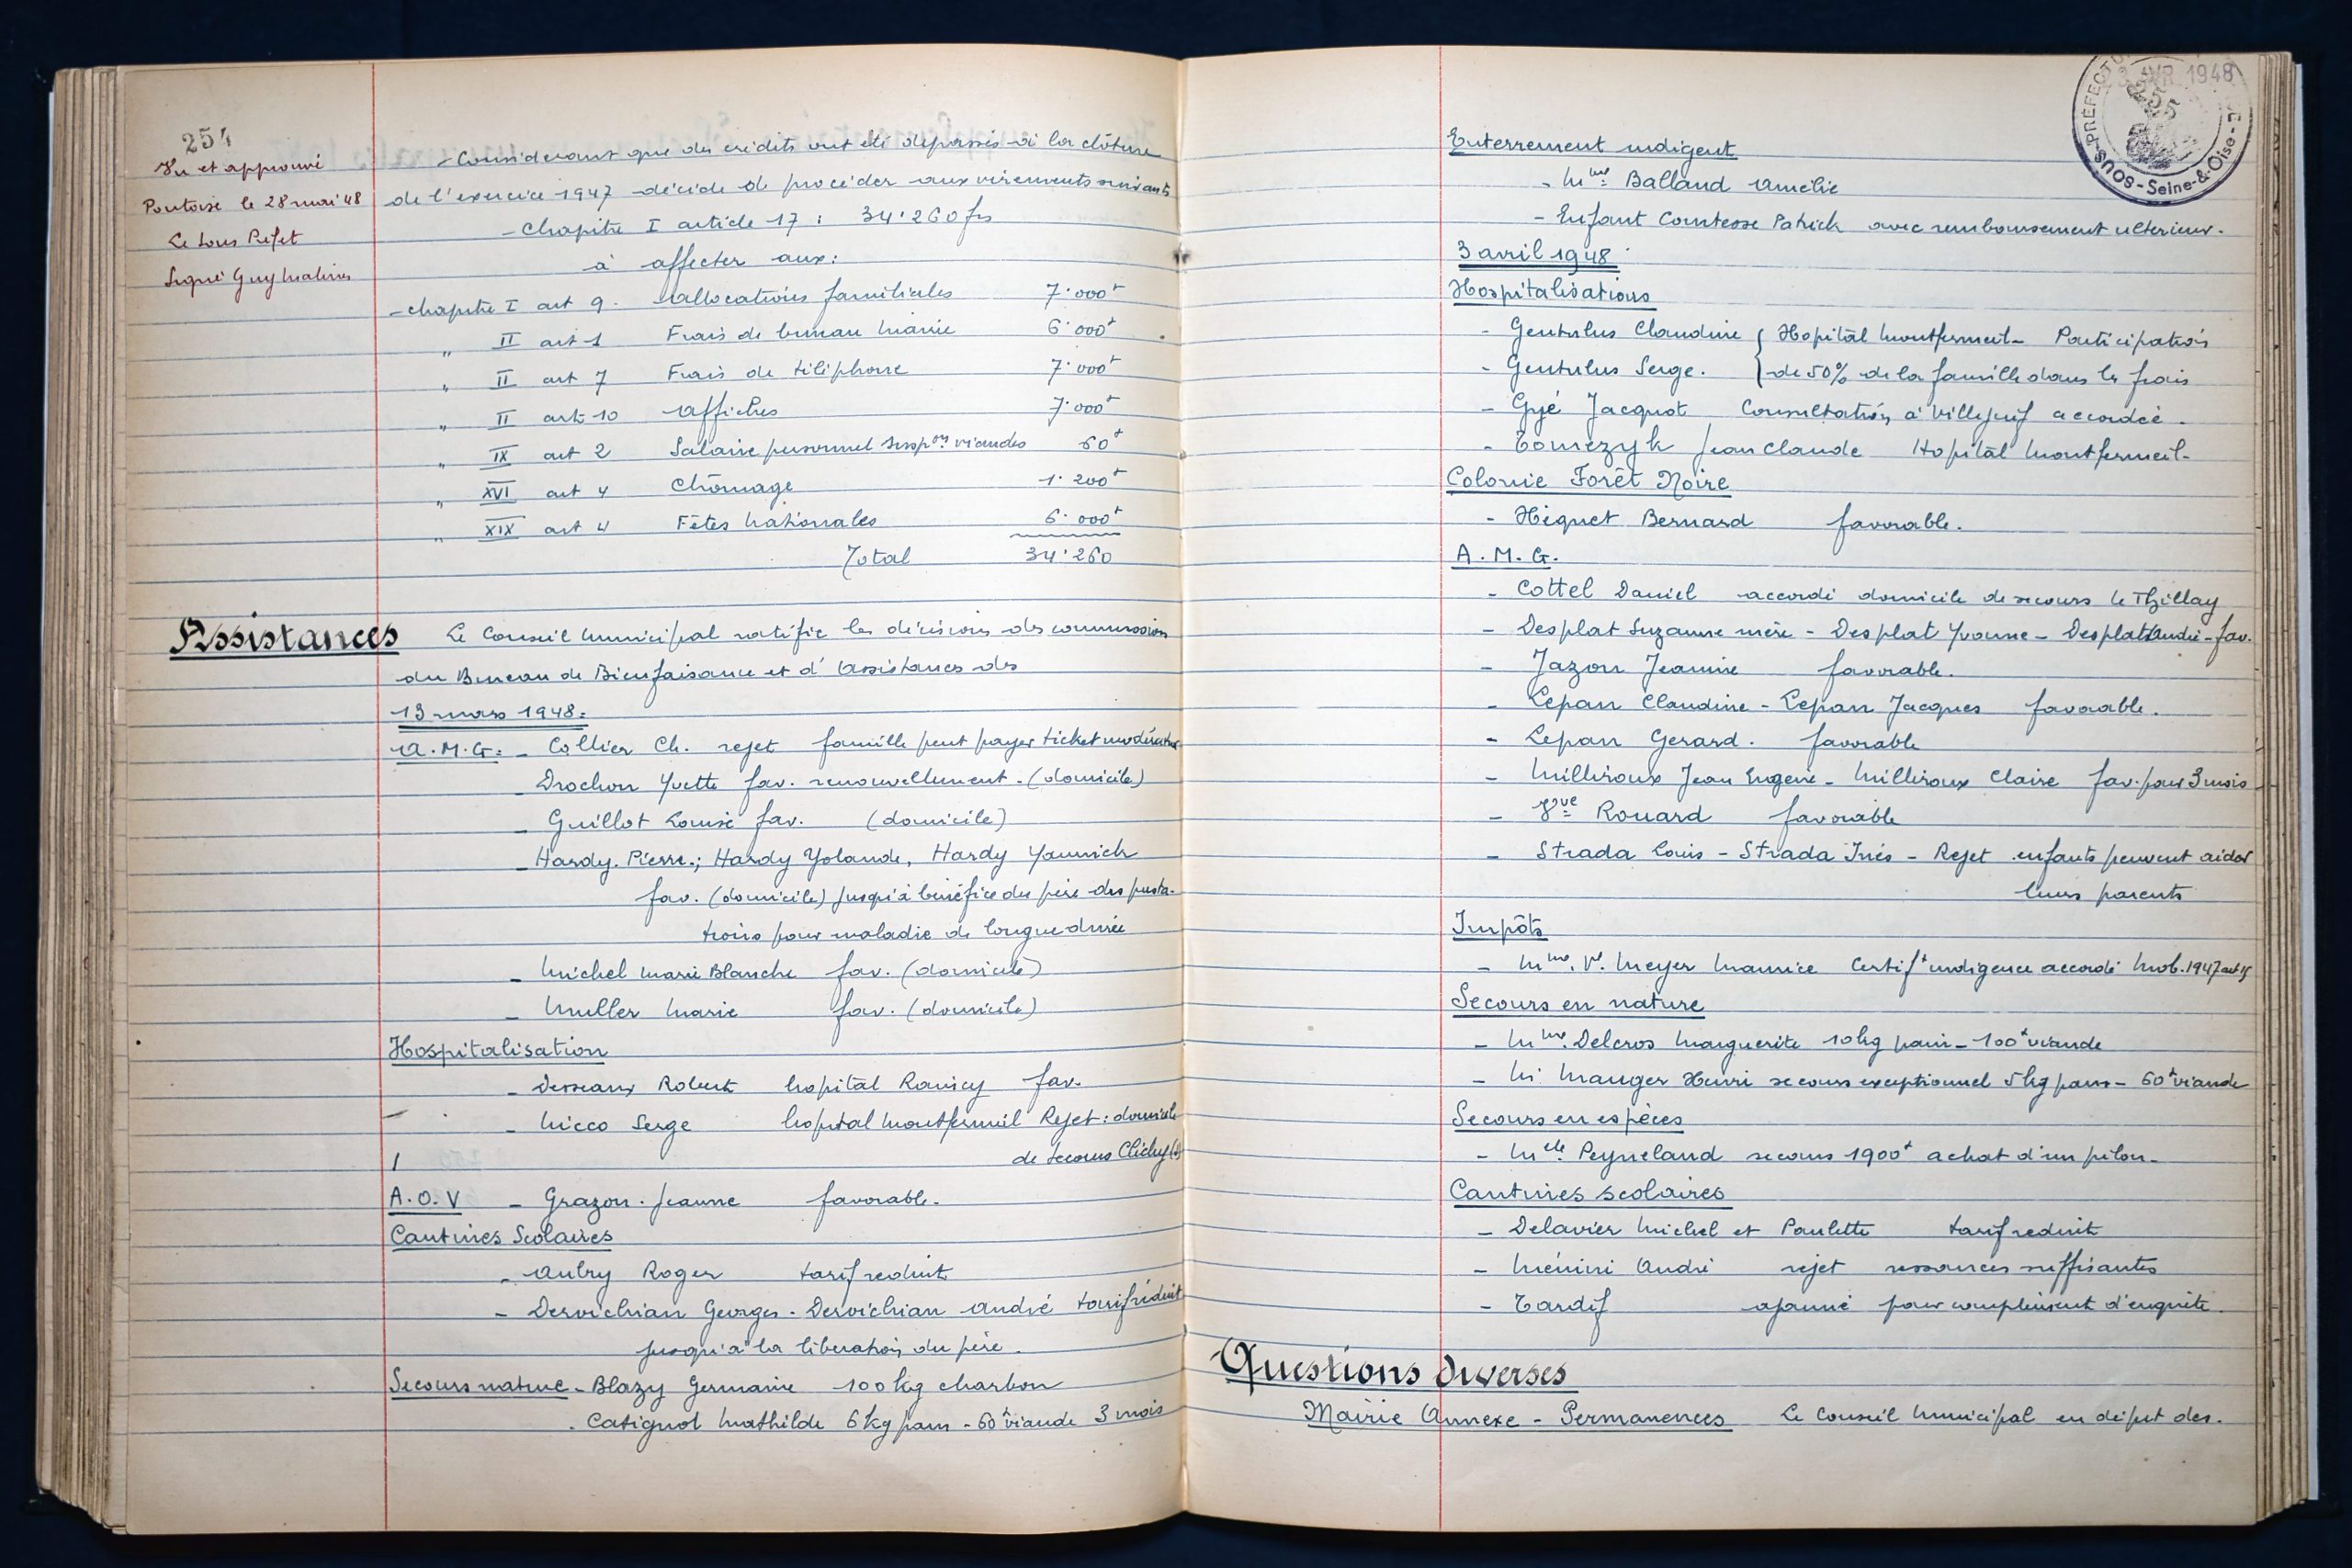 254
Vu et approuvé
Pontoise le 28 mai 48
Le Sous Préfet
Signé Guy
- Considerant que des crédits ont été dépassés à la clôture
de l'exercice 1947 décide de procéder aux virements suivants
- Chapitre I article 17 : 34.260 frs
à affecter aux :
- chapitre I art 9. Allocations familiales 7.000f
" II art 1 Frais de bureau Mairie 6.000f
" II art 7 Frais de téléphone 7.000f
" II art 10 Affiches 7.000f
" IX art 2 Salaire personnel viandes 60f
" XVI art 4 Chômage 1.200f
" XIX art 4 Fêtes Nationales 6.000f
Total 34.260
Assistances Le Conseil Municipal ratifie les décisions des commission
du Bureau de Bienfaisance et d'Assistances des
13 mars 1948 :
A.M.G : - Collier Ch. rejet famille peut payer ticket modérateur
- Drochon Yvette fav. renouvellement. (domicile)
- Guillot Louise fav. (domicile)
- Hardy. Pierre.; Hardy Yolande, Hardy Yannick
fav. (domicile) jusqu'à bénéfice du père des presta-
tions pour maladie de longue durée
- Michel Marie Blanche fav. (domicile)
- Muller Marie fav. (domicile)
Hospitalisation
- Desseaux Robert hopital Raincy fav.
- Micco Serge hopital Montfermeil Rejet : domicile
de secours Clichy
A.O.V - Grazon. Jeanne favorable.
Cantines Scolaires
- Aubry Roger tarif reduit
- Dervichian Georges - Dervichian André tarif réduit
jusqu'à la liberation du père.
Secours nature - Blazy Germaine 100 kg charbon
- Catignol Mathilde 6 kg pain - 60f viande 3 mois
SOUS-PRÉFECTU
AVR 1948
255
Seine-&-Oise
Enterrement indigent
- Mme Balland Amélie
- Enfant Comtesse Patrick avec remboursement ulterieur.
3 avril 1948
Hospitalisations
- Gentulus Claudine { Hopital Montfermeil - Participation
- Gentulus Serge. { de 50% de la famille dans les frais
- Gyé Jacquot Consultation à Villejuif accordée.
- Tomezyk Jean Claude Hopital Montfermeil -
Colonie Forêt Noire
- Hiquet Bernard favorable.
A.M.G.
- Cottel Daniel accordé domicile de secours le Thillay
- Desplat Suzanne mère - Desplat Yvonne - Desplat André - fav.
- Jazon Jeanine favorable.
- Lepan Claudine - Lepan Jacques favorable.
- Lepan Gerard. favorable
- Milliroux Jean Eugene - Milliroux Claire fav. pour 3 mois
- Vve Rouard favorable
- Strada Louis - Strada Inés - Rejet enfants peuvent aider
leurs parents
Impôts
- Mme. Ve. Meyer Maurice Certift indigence accordé Mob. 1947 art 15
Secours en nature
- Mme. Delcros Marguerite 10 kg pain - 100f viande
- M. Mauger Henri secours exceptionnel 5 kg pain - 60f viande
Secours en espèces
- Melle Peyneland secours 1900f achat d'un pilon -
Cantines scolaires
- Delavier Michel et Paulette tarif reduit
- Ménini André rejet ressources suffisantes
- Tardif ajourné pour complément d'enquête.
Questions diverses
Mairie Annexe - Permanences Le Conseil Municipal en dépit des.